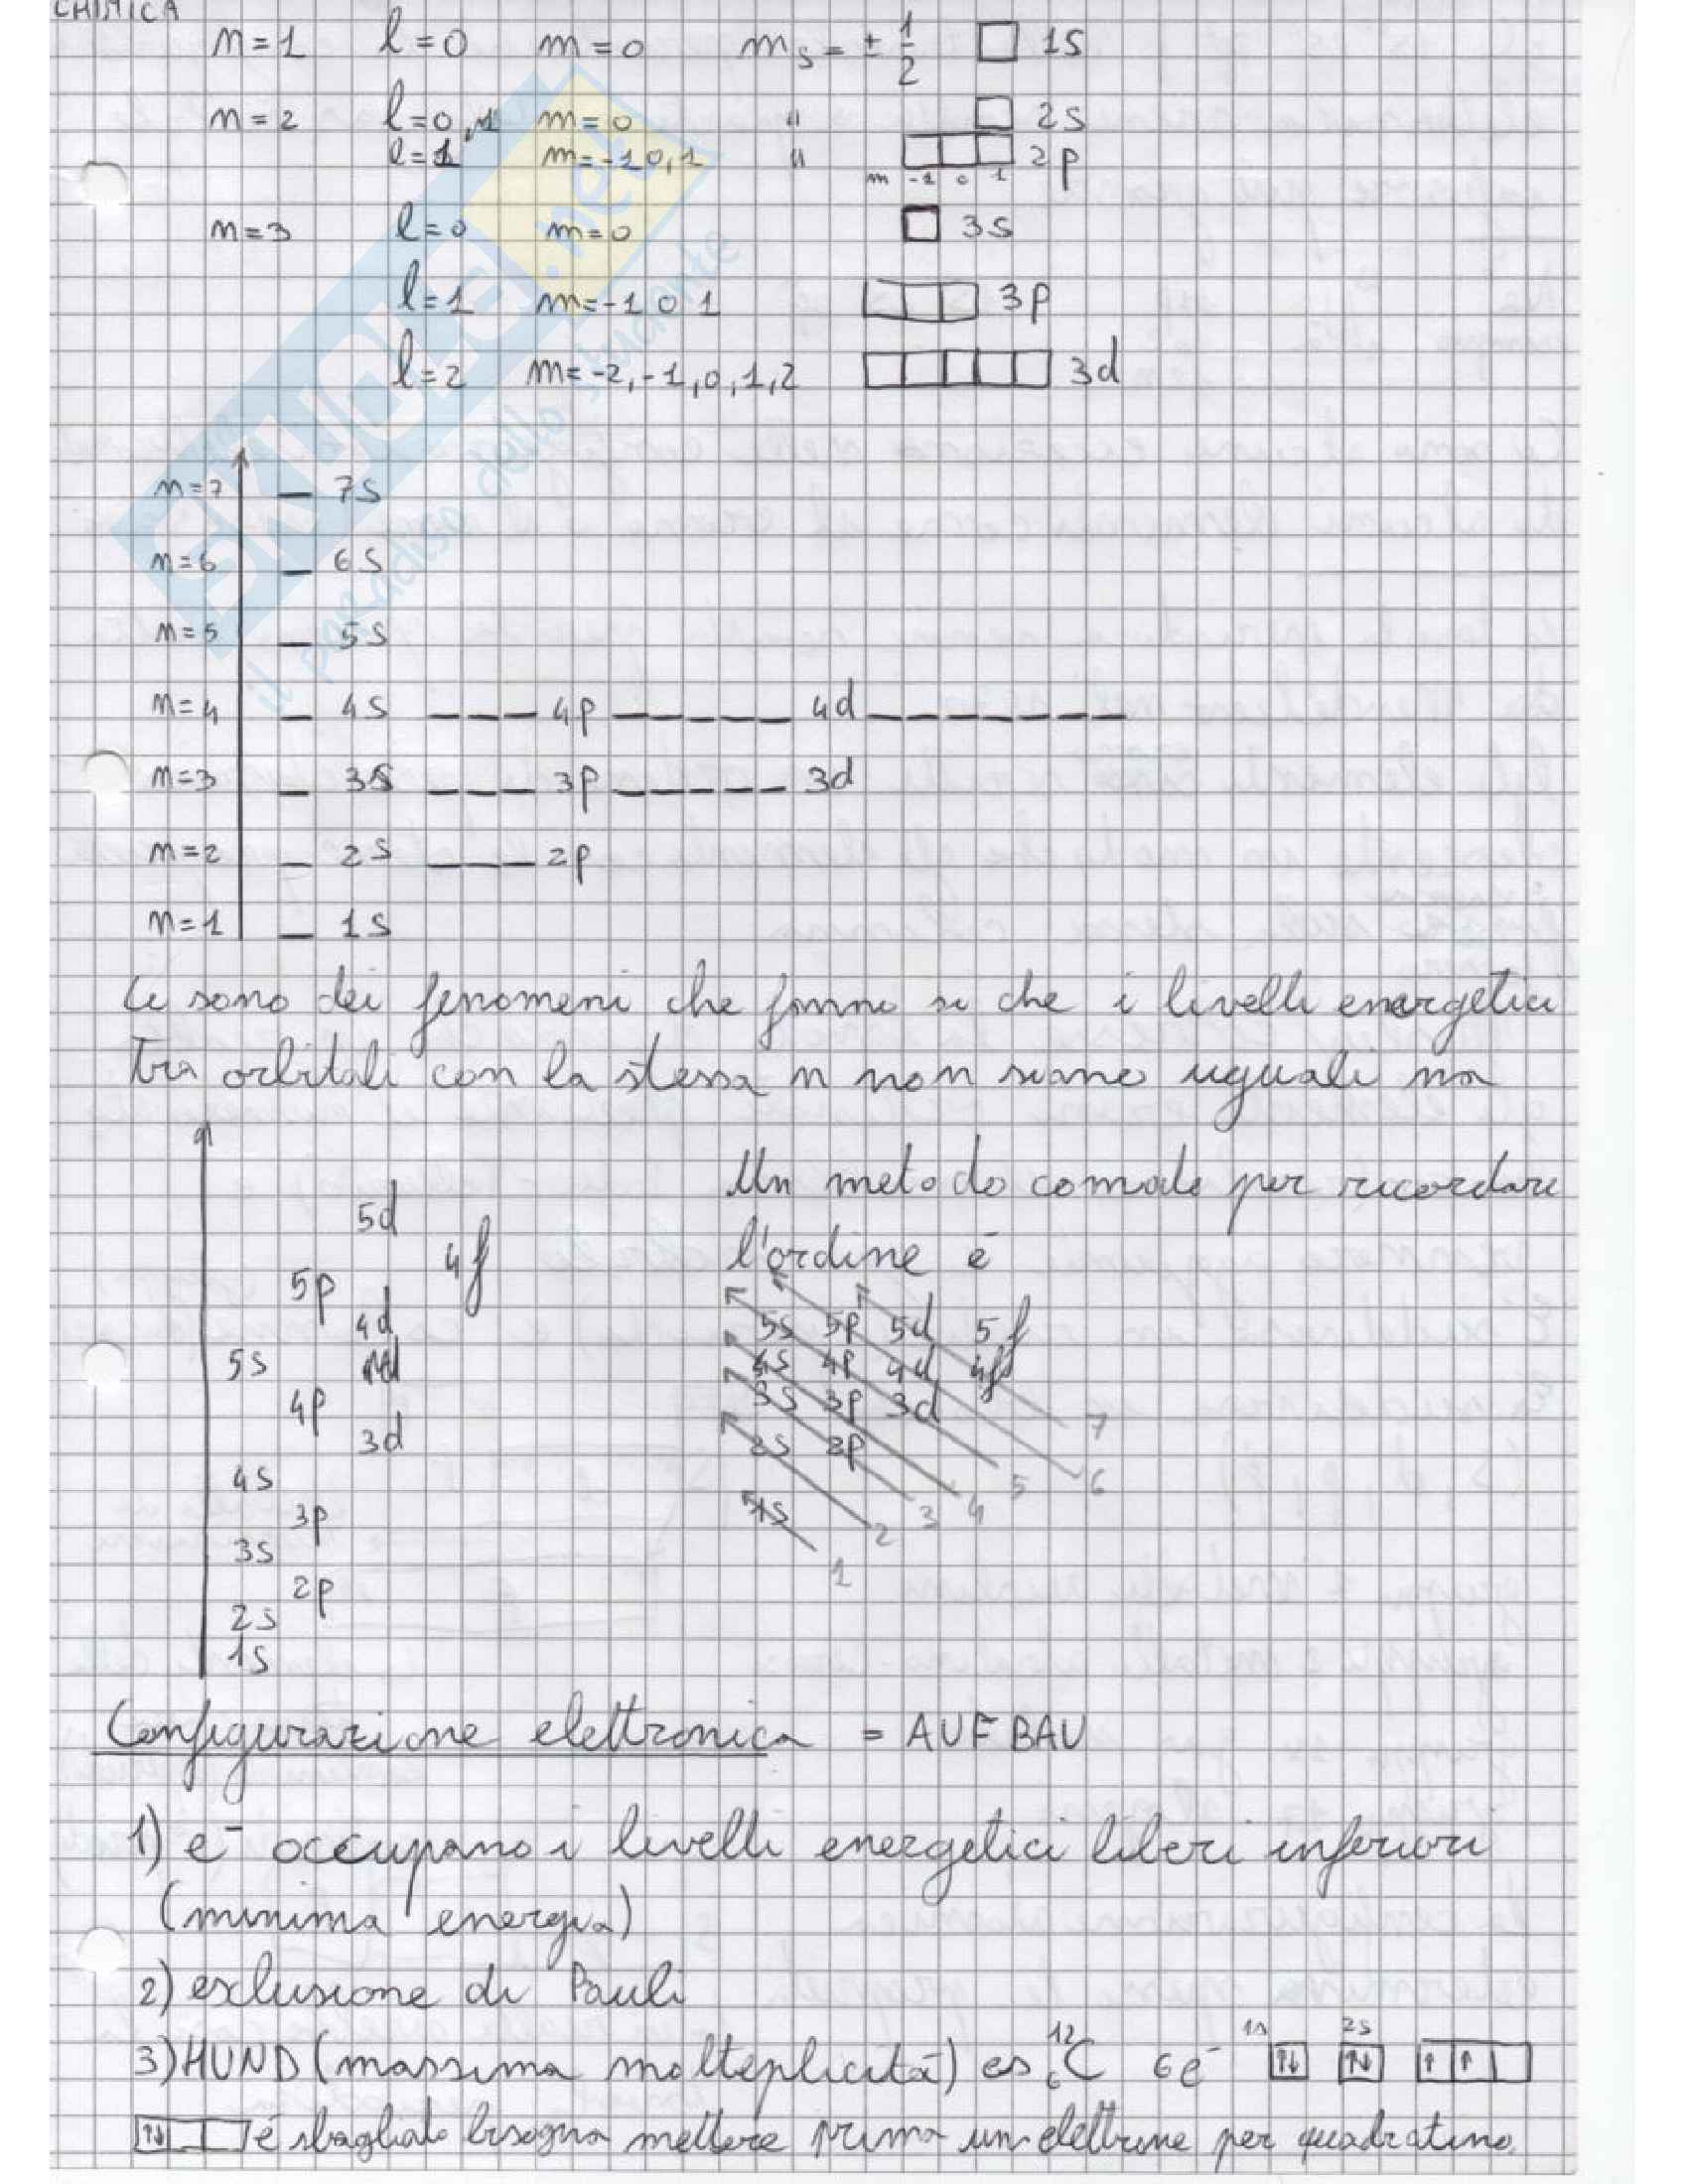 CHIMICA
n=1 l=0 m=0 ms = ± 1/2 1s
n=2 l=0,1 m=0 " 2s
l=1 m=-1 0,1 " 2p
m -1 0 1
n=3 l=0 m=0 3s
l=1 m=-1 0 1 3p
l=2 m=-2,-1,0,1,2 3d
SKUOLA.net
il paradiso dello studente
n=7 7s
n=6 6s
n=5 5s
n=4 4s 4p 4d
n=3 3s 3p 3d
n=2 2s 2p
n=1 1s
Ci sono dei fenomeni che fanno si che i livelli energetici
tra orbitali con la stessa n non siano uguali ma
Un metodo comodo per ricordare
l'ordine è
5d
4f
5p
4d
5s
4p
3d
4s
3p
3s
2p
2s
1s
5s 5p 5d 5f
4s 4p 4d 4f
3s 3p 3d
2s 2p
1s
1 2 3 4 5 6 7
Configurazione elettronica = AUFBAU
1) e⁻ occupano i livelli energetici liberi inferiori
(minima energia)
2) esclusione di Pauli
3) HUND (massima molteplicità) es ¹²₆C 6e⁻ 1s ↑↓ 2s ↑↓ ↑ ↑
↑↓ è sbagliato bisogna mettere prima un elettrone per quadratino